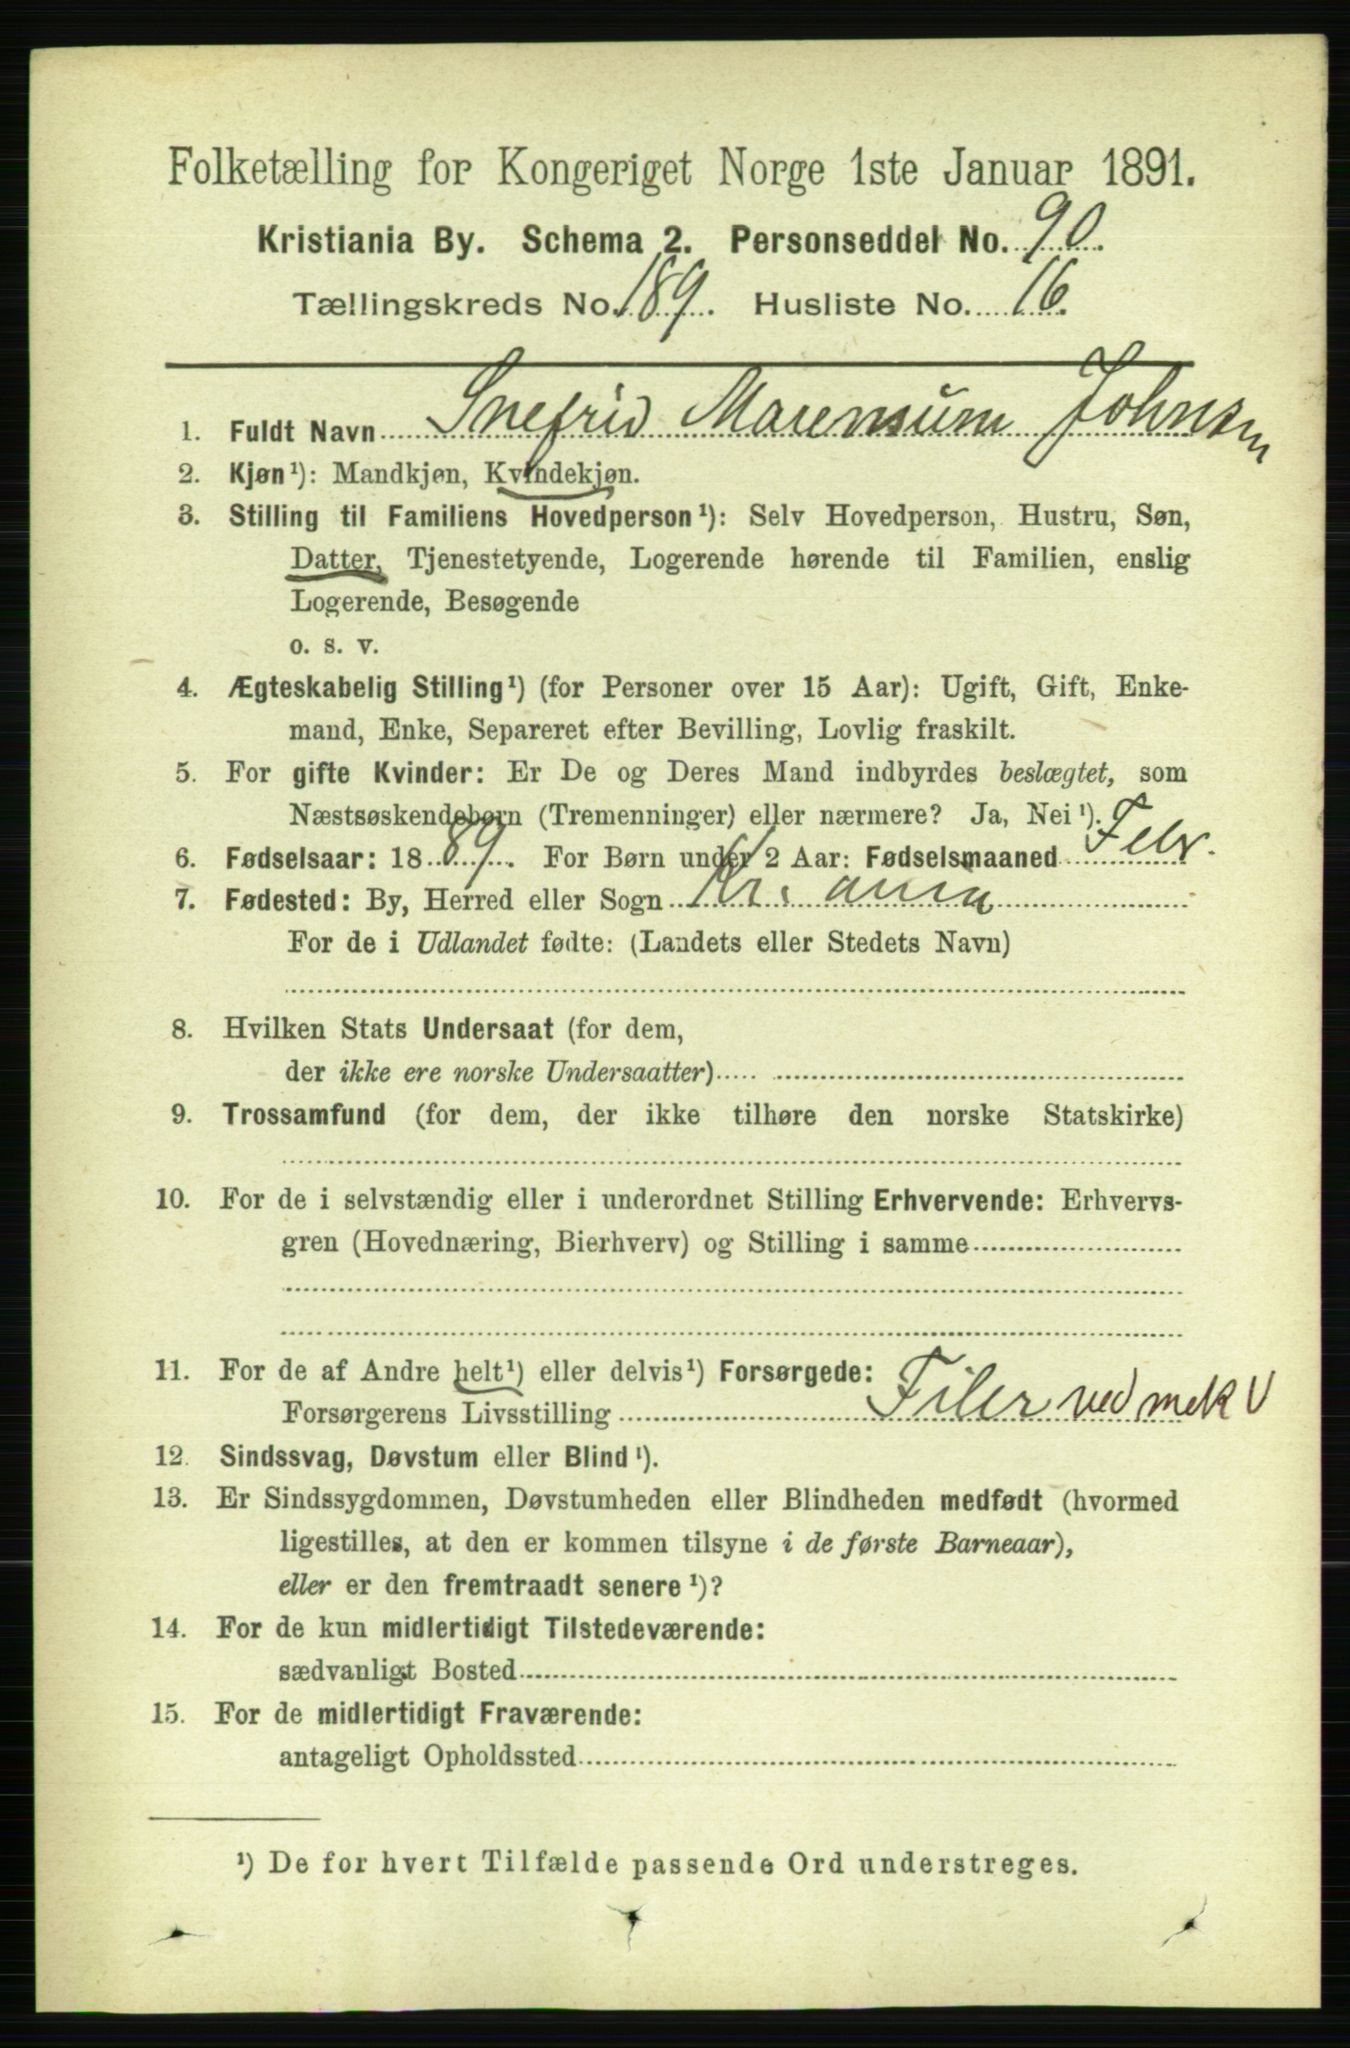 Folketælling for Kongeriget Norge 1ste Januar 1891.
Kristiania By. Schema 2. Personseddel No. 90.
Tællingskreds No. 189. Husliste No. 16.
1. Fuldt Navn Snefrid Johnsen
2. Kjøn¹): Mandkjøn, Kvindekjøn.
3. Stilling til Familiens Hovedperson¹): Selv Hovedperson, Hustru, Søn,
Datter, Tjenestetyende, Logerende hørende til Familien, enslig
Logerende, Besøgende
o. s. v.
4. Ægteskabelig Stilling¹) (for Personer over 15 Aar): Ugift, Gift, Enke-
mand, Enke, Separeret efter Bevilling, Lovlig fraskilt.
5. For gifte Kvinder: Er De og Deres Mand indbyrdes beslægtet, som
Næstsøskendebørn (Tremenninger) eller nærmere? Ja, Nei¹).
6. Fødselsaar: 1889. For Børn under 2 Aar: Fødselsmaaned Febr.
7. Fødested: By, Herred eller Sogn Kr.ania
For de i Udlandet fødte: (Landets eller Stedets Navn)
8. Hvilken Stats Undersaat (for dem,
der ikke ere norske Undersaatter)
9. Trossamfund (for dem, der ikke tilhøre den norske Statskirke)
10. For de i selvstændig eller i underordnet Stilling Erhvervende: Erhvervs-
gren (Hovednæring, Bierhverv) og Stilling i samme
11. For de af Andre helt¹) eller delvis¹) Forsørgede:
Forsørgerens Livsstilling Filer ved mek V
12. Sindssvag, Døvstum eller Blind¹).
13. Er Sindssygdommen, Døvstumheden eller Blindheden medfødt (hvormed
ligestilles, at den er kommen tilsyne i de første Barneaar),
eller er den fremtraadt senere¹)?
14. For de kun midlertidigt Tilstedeværende:
sædvanligt Bosted
15. For de midlertidigt Fraværende:
antageligt Opholdssted
¹) De for hvert Tilfælde passende Ord understreges.